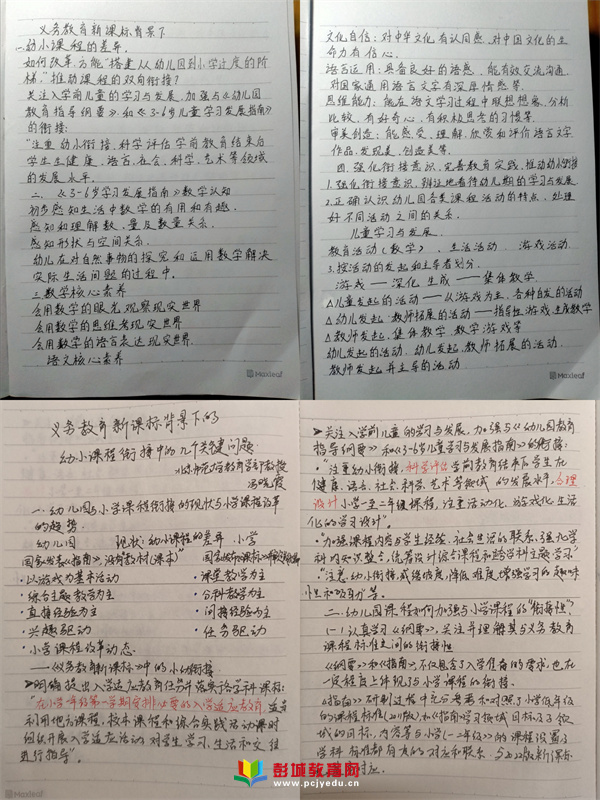 义务教育新课标背景下
一.幼小课程的差异.
如何改革,方能"搭建从幼儿园到小学过度的阶
梯"推动课程的双向衔接?
关注入学前儿童的学习与发展,加强与《幼儿园
教育指导纲要》和《3-6岁儿童学习发展指南》
的衔接:
"注重幼小衔接,科学评估学前教育结束后
学生在健康,语言,社会,科学,艺术等领域
的发展水平.
二、《3-6岁学习发展指南》数学认知
初步感知生活中数学的有用和有趣.
感知和理解数,量及数量关系.
感知形状与空间关系.
幼儿在对自然事物的探究和运用数学解决
实际生活问题的过程中.
三.数学核心素养
会用数学的眼光观察现实世界
会用数学的思维考现实世界
会用数学的语言表达现实世界
语文核心素养
Maxleaf
文化自信:对中华文化有认同感,对中国文化的生
命力有信心.
语言运用:具备良好的语感,能有效交流沟通,
对国家通用语言文字有深厚情感等.
思维能力:能在语文学习过程中联想想象,分析
比较,有好奇心,有积极思考的习惯等.
审美创造:能感受,理解,欣赏和评价语言文字
作品,发现美,创造美等.
四.强化衔接意识,完善教育实践,推动幼小衔接
1.强化衔接意识,辩证地看待幼儿期的学习与发展.
2.正确认识幼儿园各类课程活动的特点,处理
好不同活动之间的关系.
儿童学习与发展.
教育活动(教学)、生活活动、游戏活动.
3.按活动的发起和主导者划分.
游戏——深化 生成——集体教学
△儿童发起的活动——以游戏为主,各种自发的活动
△幼儿发起 教师拓展的活动——指导性游戏,生成教学
△教师发起,集体教学,教学游戏等
幼儿发起的活动.幼儿发起,教师拓展的活动.
教师发起并主导的活动
Maxleaf
义务教育新课标背景下的
幼小课程衔接中的几个关键问题
北京师范大学教育学部教授
冯晓霞
一.幼儿园与小学课程衔接的现状与小学课程改革
的趋势.
幼儿园 现状:幼小课程的差异 小学
国家发布《指南》,没有教材(课本)
·以游戏为基本活动 ·课堂教学为主
·综合主题教学为主 ·分科教学为主
·直接经验为主 ·间接经验为主
·兴趣驱动 ·任务驱动
·小学课程改革动态
——《义务教育新课标》中的小幼衔接
➢明确提出入学适应教育任务并落实于各学科课程:
"在小学一年级第一学期安排必要的入学适应教育,适当
利用地方课程,校本课程和综合实践活动课时
组织开展入学适应活动,对学生学习,生活和交往
进行指导".
Maxleaf
➢关注入学前儿童的学习与发展,加强与《幼儿园教育
指导纲要》和《3-6岁儿童学习与发展指南》的衔接:
·"注重幼小衔接,科学评估学前教育结束后学生在
健康.语言.社会.科学.艺术等领域的发展水平,合理
设计小学一至二年级课程,注重活动化、游戏化、生活
化的学习设计".
·"加强课程内容与学生经验,社会生活的联系,强化学
科内知识整合,统筹设计综合课程和跨学科主题学习"
·"注意幼小衔接,减缓坡度,降低难度,增强学习的趣味
性和吸引力"等.
二.幼儿园课程如何加强与小学课程的"衔接性"?
(一)认真学习《纲要》,关注并理解其与义务教育
课程标准之间的衔接性
《纲要》和《指南》不仅包含了入学准备的要求,也在
一定程度上体现了与小学课程的衔接.
《指南》研制过程中充分参考和对照了小学低年级
的课程标准(2011版)和《指南》学习领域目标及了领
域的目标,内容等与小学(一二年级)的课程设置及
学科标准都有大的对应和联系,与2022版新课标
对应.
彭城教育网
www.pcjyedu.cn